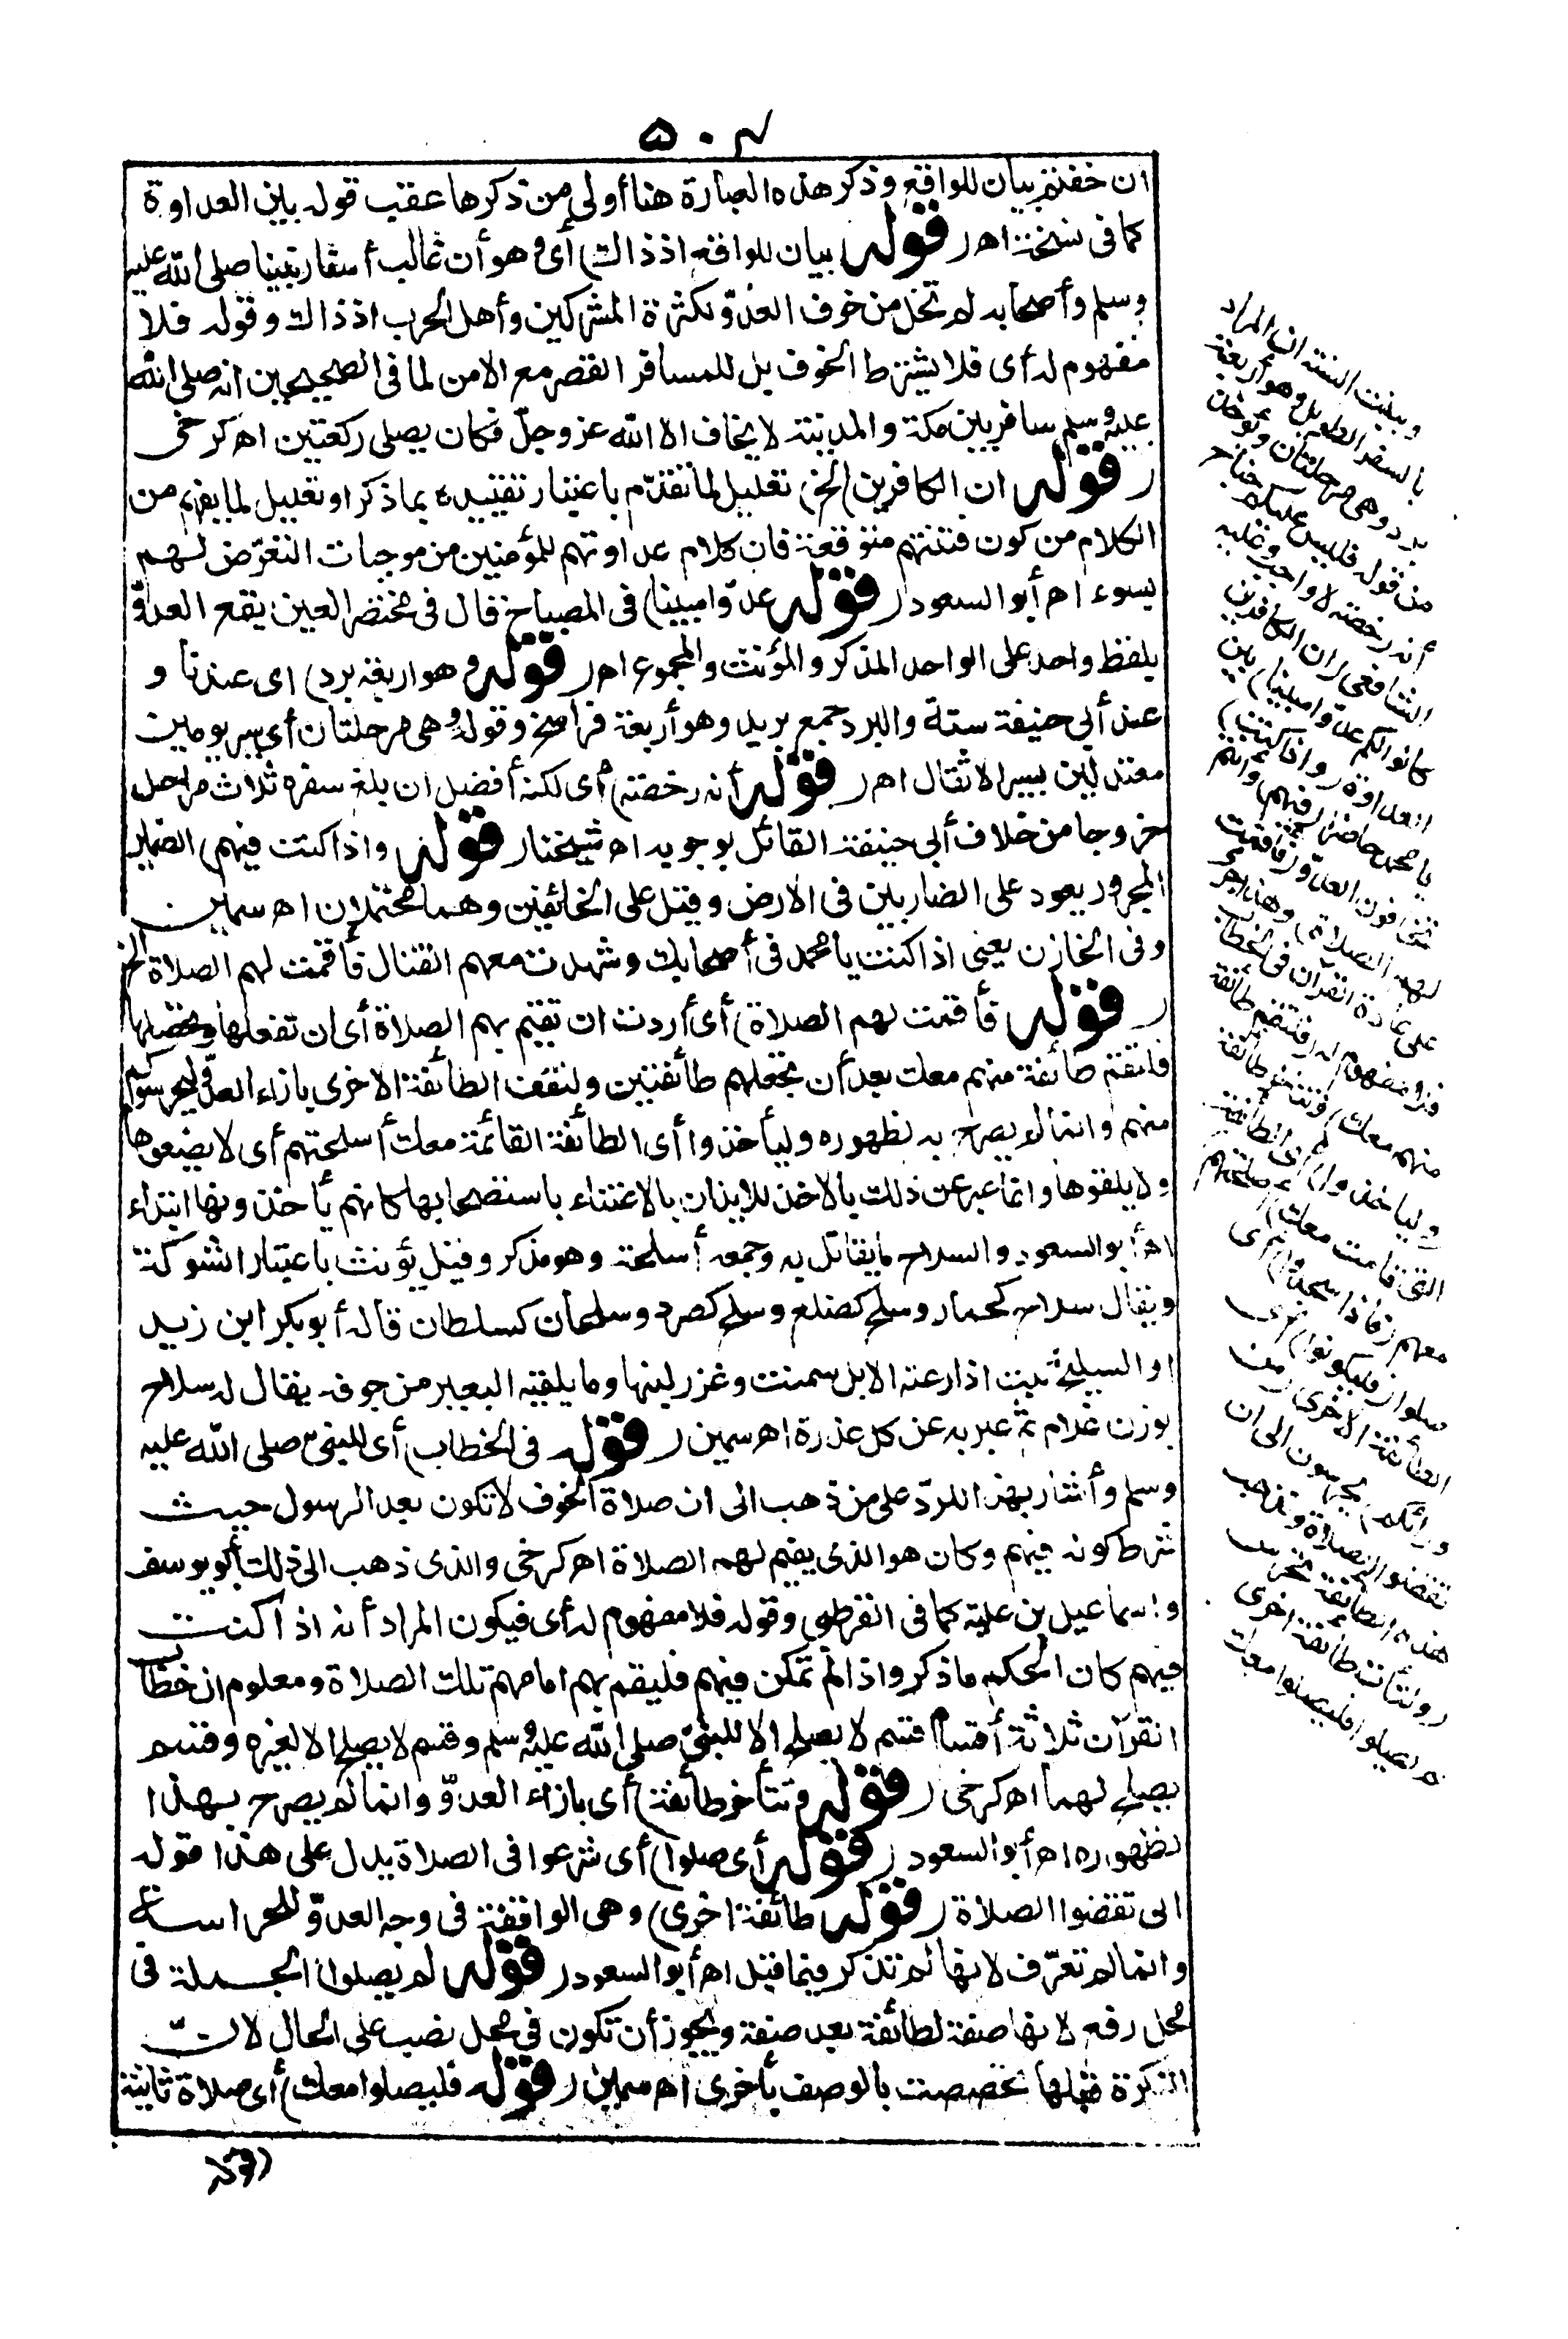 ٥٠٤
ان خفتم بيان للواقع وذكر هذه العبارة هنا أولى من ذكرها عقب قوله بين العداوة
كما فى نسخة اهـ (قوله بيان للواقع اذ ذاك) أى وهو أن غالب أسفار نبينا صلى الله عليه
وسلم وأصحابه لم تخل من خوف العدوّ لكثرة المشركين وأهل الحرب اذ ذاك وقوله فلا
مفهوم له أى فلا يشترط الخوف بل للمسافر القصر مع الامن لما فى الصحيحين انه صلى الله
عليه وسلم سافر بين مكة والمدينة لا يخاف الا الله عز وجلّ فكان يصلى ركعتين اهـ كرخى
(قوله ان الكافرين الخ) تعليل لما تقدّم باعتبار تقييده بما ذكر او تعليل لما يفهم من
الكلام من كون فتنتهم متوقعة فان كلام عداوتهم للمؤمنين من موجبات التعرّض لهم
بسوء اهـ أبو السعود (قوله عدوّا مبينا) فى المصباح قال فى مختصر العين يقع العدوّ
بلفظ واحد على الواحد المذكر والمؤنث والمجموع اهـ (قوله وهو اربعة برد) اى عندنا و
عند أبى حنيفة ستة والبرد جمع بريد وهو أربعة فراسخ وقوله وهى مرحلتان أى سير يومين
معتدلين بسير الاثقال اهـ (قوله أنه رخصة) أى لكنه أفضل ان بلغ سفره ثلاث مراحل
خروجا من خلاف أبى حنيفة القائل بوجوبه اهـ شيخنا (قوله واذا كنت فيهم) الضمير
المجرور يعود على الضاربين فى الارض وقيل على الخائفين وهما محتملان اهـ سمين
وفى الخازن يعنى اذا كنت يا محمد فى أصحابك وشهدت معهم القتال فأقمت لهم الصلاة الخ
(قوله فأقمت لهم الصلاة) أى أردت ان تقيم بهم الصلاة أى ان تفعلها وتحصلها
فلتقم طائفة منهم معك بعد أن تجعلهم طائفتين ولتقف الطائفة الاخرى بازاء العدوّ ليحرسوكم
منهم وانما لم يصرح به لظهوره وليأخذوا أى الطائفة القائمة معك أسلحتهم أى لا يضعوها
ولا يلقوها وانما عبر عن ذلك بالاخذ للايذان بالاعتناء باستصحابها كانهم يأخذونها ابتداء
اهـ أبو السعود والسلاح ما يقاتل به وجمعه أسلحة وهو مذكر وقيل يؤنث باعتبار الشوكة
ويقال سلاح كحمار وسلح كضلع وسلح كصرد وسلحان كسلطان قاله أبو بكر ابن زيد
او السليح نبت اذا رعته الابل سمنت وغزر لبنها وما يلقيه البعير من جوفه يقال له سلاح
بوزن غلام ثم عبر به عن كل عذرة اهـ سمين (قوله فى الخطاب) أى للنبىّ صلى الله عليه
وسلم وأشار بهذا للردّ على من ذهب الى ان صلاة الخوف لا تكون بعد الرسول حيث
شرط كونه فيهم وكان هو الذى يقيم لهم الصلاة اهـ كرخى والذى ذهب الى ذلك أبو يوسف
واسماعيل بن علية كما فى القرطبى وقوله فلا مفهوم له أى فيكون المراد أنه اذا كنت
فيهم كان الحكم ماذكر واذا لم تكن فيهم فليقم بهم امامهم تلك الصلاة ومعلوم ان خطاب
القرآن ثلاثة أقسام قسم لا يصلح الا للنبىّ صلى الله عليه وسلم وقسم لا يصلح الا لغيره وقسم
يصلح لهما اهـ كرخى (قوله وتتأخر طائفة) أى بازاء العدوّ وانما لم يصرح بهذا
لظهوره اهـ أبو السعود (قوله أى صلوا) أى شرعوا فى الصلاة يدل على هذا قوله
الى تقضوا الصلاة (قوله طائفة اخرى) وهى الواقفة فى وجه العدوّ للحراسة
وانما لم تعرّف لانها لم تذكر فيما قبل اهـ أبو السعود (قوله لم يصلوا) الجملة فى
محل رفع لانها صفة لطائفة بعد صفة ويجوز أن تكون فى محل نصب على الحال لانّ
النكرة قبلها تخصصت بالوصف بأخرى اهـ سمين (قوله فليصلوا معك) أى صلاة ثانية
وبينت السنة ان المراد
بالسفر الطويل وهو أربعة
برد وهى مرحلتان ويؤخذ
من قوله فليس عليكم جناح
أنه رخصة لا واجب وعليه
الشافعى (ان الكافرين
كانوا لكم عدوّا مبينا) بين
العداوة (واذا كنت)
يا محمد حاضرا (فيهم) وأنتم
تخافون العدوّ (فأقمت
لهم الصلاة) وهذا جرى
على عادة القرآن فى الخطاب
فلا مفهوم له (فلتقم طائفة
منهم معك) وتتأخر طائفة
(وليأخذوا) أى الطائفة
التى قامت معك (أسلحتهم)
معهم (فاذا سجدوا) أى
صلوا (فليكونوا) أى
الطائفة الاخرى (من
ورائكم) يحرسون الى ان
تقضوا الصلاة وتذهب
هذه الطائفة تحرس
(ولتأت طائفة اخرى
لم يصلوا فليصلوا معك